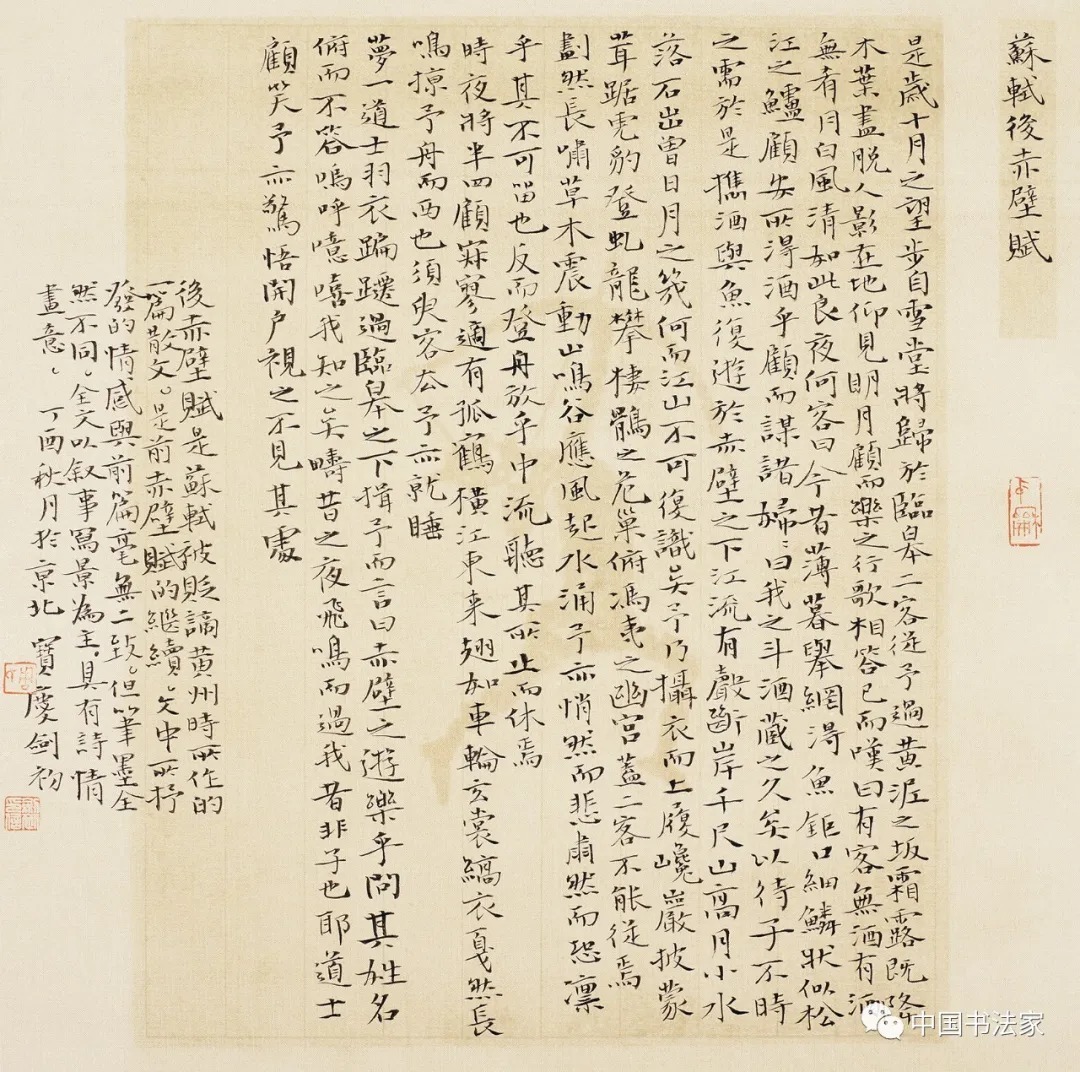 蘇軾後赤壁賦
是歲十月之望步自雪堂將歸於臨皋二客從予過黃泥之坂霜露既降
木葉盡脫人影在地仰見明月顧而樂之行歌相答已而嘆曰有客無酒有酒
無肴月白風清如此良夜何客曰今昔薄暮舉網得魚鉅口細鱗狀似松
江之鱸顧安所得酒乎顧而謀諸婦〻曰我之斗酒藏之久矣以待子不時
之需於是攜酒與魚復遊於赤壁之下江流有聲斷岸千尺山高月小水
落石出曾日月之幾何而江山不可復識矣予乃攝衣而上履巉巖披蒙
茸踞虎豹登虬龍攀棲鶻之危巢俯馮夷之幽宮蓋二客不能從焉
劃然長嘯草木震動山鳴谷應風起水涌予亦悄然而悲肅然而恐凜
乎其不可留也反而登舟放乎中流聽其所止而休焉
時夜將半四顧寂寥適有孤鶴橫江東来翅如車輪玄裳縞衣戛然長
鳴掠予舟而西也須臾客去予亦就睡
夢一道士羽衣蹁躚過臨皋之下揖予而言曰赤壁之遊樂乎問其姓名
俯而不答嗚呼噫嘻我知之矣疇昔之夜飛鳴而過我者非子也耶道士
顧笑予亦驚悟開戶視之不見其處
後赤壁賦是蘇軾被貶謫黃州時所作的
一篇散文。是前赤壁賦的繼續。文中所抒
發的情感與前篇毫無二致。但筆墨全
然不同。全文以叙事寫景為主,具有詩情
畫意。丁酉秋月於京北 寶慶劍初
中国书法家